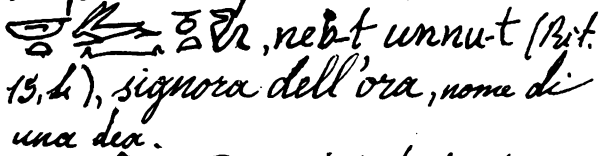 , neb-t unnu-t (Rit.
15, b), signora dell'ora, nome di
una dea.